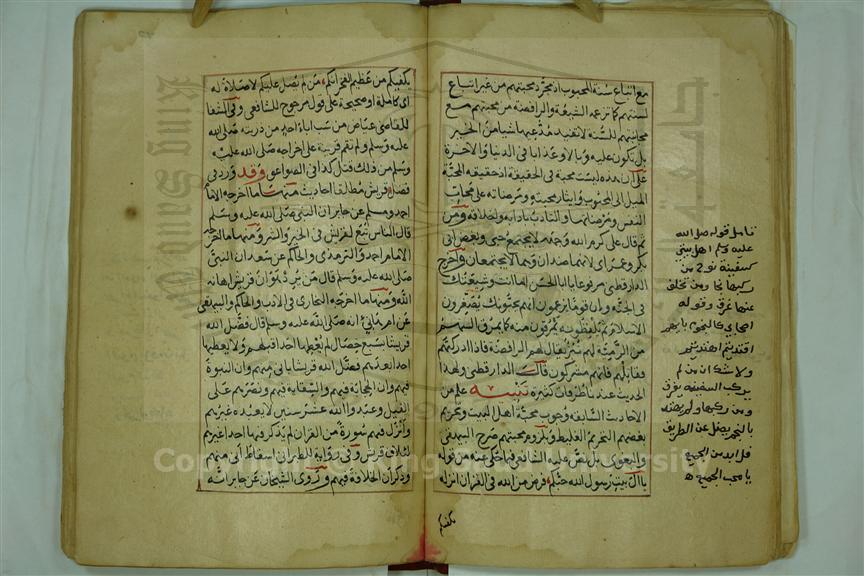 مع اتباع سنة المحبوب اذ مجرد محبتهم من غير اتباع
لسنتهم كما تزعمه الشيعة والرافضة من محبتهم مع
مجانبتهم للسنة لا تفيد مدعيها شيا من الخير
بل تكون عليه وبالا وعذابا في الدنيا والاخرة
على ان هذه ليست محبة في الحقيقة اذ حقيقة المحبة
الميل الى المحبوب وايثار محبوبه ومرضاته على محاب
النفس ومرضاتها والتادب بادابه واخلاقه ومن
ثم قال علي كرم الله وجهه لا يجتمع حبي وبغض ابي
بكر وعمر اي لانهما ضدان وهما لا يجتمعان واخرج
الدارقطني مرفوعا يا ابا الحسن اما انت وشيعتك
في الجنة وان قوما يزعمون انهم يحبونك يصغرون
الاسلام ثم يلفظونه يمرقون منه كما يمرق السهم
من الرمية لهم نبز يقال لهم الرافضة فاذا ادركتهم
فقاتلهم فانهم مشركون قال الدارقطني ولهذا
الحديث عندنا طرقات كثيرة تنبيه علم من
الاحاديث السابقة وجوب محبة اهل البيت وتحريم
بغضهم التحريم الغليظ وبلزوم محبتهم صرح البيهقي
والبغوي بل نص عليه الشافعي فيما حكي عنه من قوله
يا آل بيت رسول الله حبكم فرض من الله في القران انزله
يكفيكم
تامل قوله صلى الله
عليه وسلم اهل بيتي
كسفينة نوح من
ركبها نجا ومن تخلف
عنها غرق وقوله
اصحابي كالنجوم بايهم
اقتديتم اهتديتم
ولا شك ان من لم
يركب السفينة يغرق
ومن ركبها ولم يهتد
بالنجم يضل عن الطريق
يا محب الجميع
يكفيكم من عظيم الفخر انكم من لم يصل عليكم لا صلاة له
اي كاملة او صحيحة على قول مرجوح للشافعي وفي الشفا
للقاضي عياض من سب ابا احد من ذريته صلى الله
عليه وسلم ولم تقم قرينة على اخراجه صلى الله عليه
وسلم من ذلك قتل كذا في الصواعق وقد ورد في
فضل قريش مطلقا احاديث منها ما اخرجه الامام
احمد ومسلم عن جابر ان النبي صلى الله عليه وسلم
قال الناس تبع لقريش في الخير والشر ومنها ما اخرجه
الامام احمد والترمذي والحاكم عن سعد ان النبي
صلى الله عليه وسلم قال من يرد هوان قريش اهانه
الله ومنها ما اخرجه البخاري في الادب والحاكم والبيهقي
عن ام هانئ انه صلى الله عليه وسلم قال فضل الله
قريشا بسبع خصال لم يعطها احد قبلهم ولا يعطها
احد بعدهم فضل الله قريشا باني منهم وان النبوة
فيهم وان الحجابة فيهم والسقاية فيهم ونصرهم على
الفيل وعبدوا الله عشر سنين لا يعبده غيرهم
وانزل فيهم سورة من القران لم يذكر فيها احد غيرهم
لئلاف قريش وفي رواية للطبراني اسقاط اني منهم
وذكر ان الخلافة فيهم وروى الشيخان عن جابر انه
Copyright © King Saud University